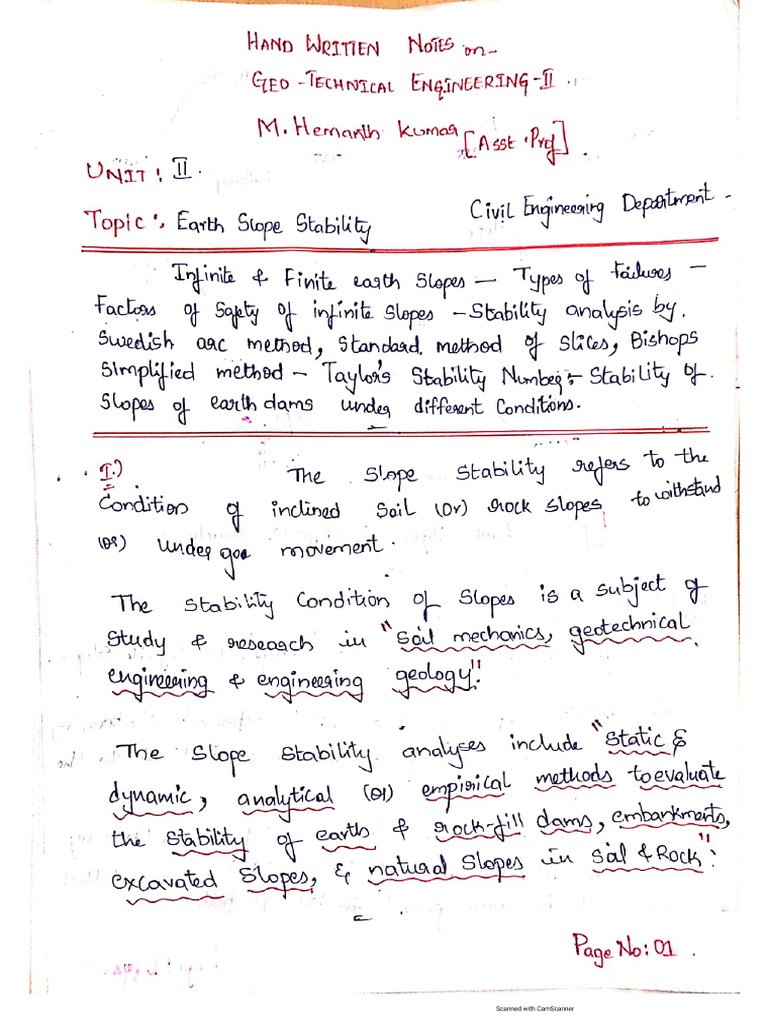 HAND WRITTEN NOTES on -
GEO - TECHNICAL ENGINEERING - II .
M. Hemanth Kumar [Asst . Prof]
UNIT : II .
Civil Engineering Department -
Topic : Earth Slope Stability
Infinite & Finite earth slopes - Types of failures -
Factors of Safety of infinite slopes - Stability analysis by.
Swedish arc method, Standard method of slices, Bishops
Simplified method - Taylor's Stability Number - Stability of.
Slopes of earth dams under different Conditions.
I.) The Slope Stability refers to the
Condition of inclined Soil (Or) Rock slopes to withstand
(or) undergoe movement.
The Stability Condition of Slopes is a subject of
Study & research in "Soil mechanics, geotechnical
engineering & engineering geology".
The Slope Stability analyses include "Static &
dynamic, analytical (or) empirical methods to evaluate
the Stability of earth & rock-fill dams, embankments,
excavated Slopes, & natural Slopes in Soil & Rock".
Page No: 01 .
Scanned with CamScanner